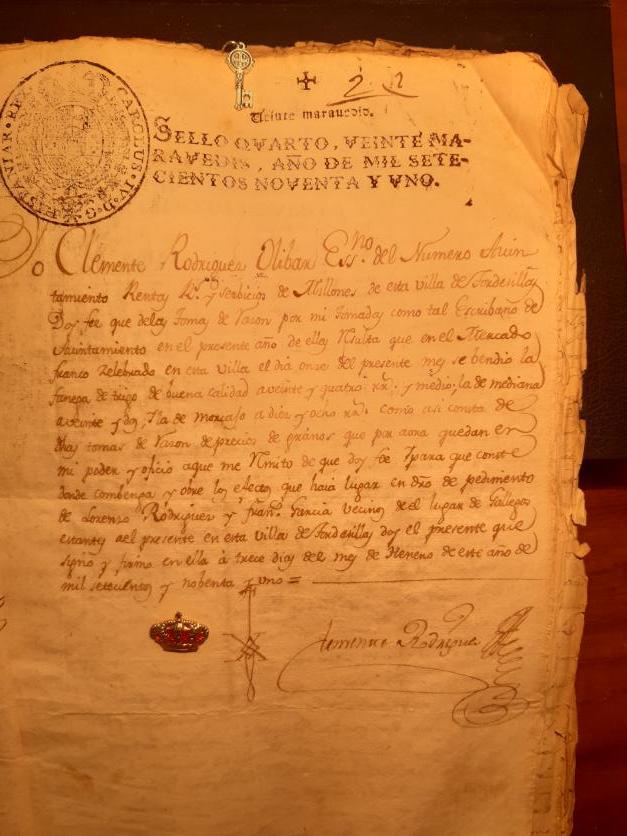 CAROLUS IV D G HISPANIAR REX
2 2
Veinte maravedis.
SELLO QVARTO, VEINTE MA-
RAVEDIS, AÑO DE MIL SETE-
CIENTOS NOVENTA Y VNO.
Yo Clemente Rodriguez Olibar Ess.no del Numero Aiun
tamiento Rentas R.s y serbicios de Millones de esta villa de Tordesillas
Doy fee que delas tomas de Razon por mi tomadas como tal Escribano de
Aiuntamiento en el presente año de ellas Resulta que en el Mercado
franco zelebrado en esta villa el dia onze del presente mes se bendio la
fanega de trigo de buena calidad a veinte y quatro rr.s y medio; la de mediana
aveinte y dos, Yla de morcajo a diez y ocho rr.s como asi consta de
dhas tomas de Razon de precios de granos que por aora quedan en
mi poder y oficio aque me Rmito de que doy fee Ypara que conste
donde combenga y obre los efectos que haia lugar en dro de pedimento
de Lorenzo Rodriguez y fran.co Garcia vecinos de el lugar de Gallegos
estantes ael presente en esta villa de Tordesillas doy el presente que
signo y firmo en ella à trece dias del mes de Henero de este año de
mil setecientos y nobenta y uno =
Clemente Rodriguez